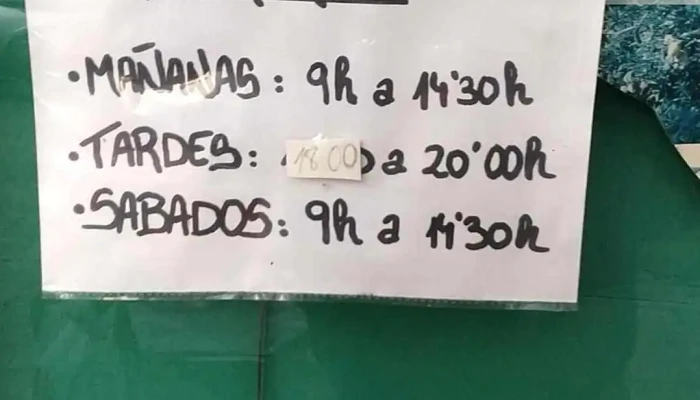 • MAÑANAS: 9h a 14'30h
• TARDES: 18'00 a 20'00h
• SABADOS: 9h a 14'30h